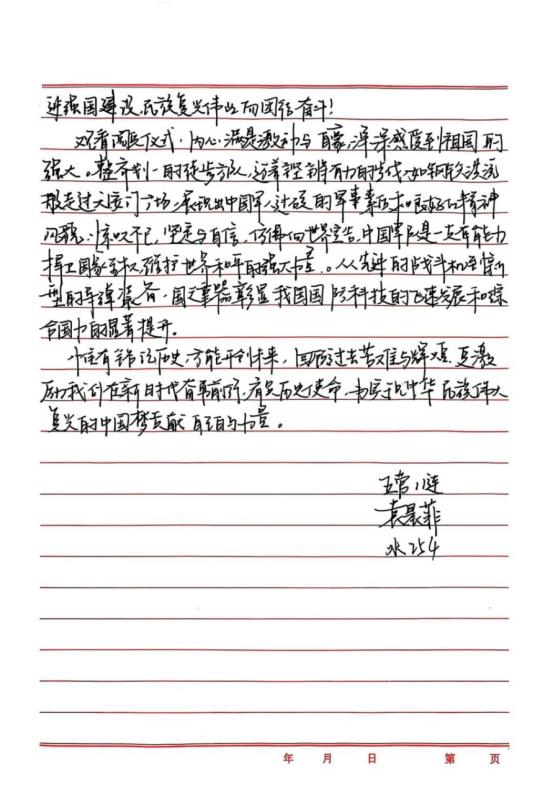 进强国建设、民族复兴伟业而团结奋斗!
观看阅兵仪式,内心满是激动与自豪,深深感受到祖国的
强大。整齐划一的徒步方队,迈着坚韧有力的步伐,如钢铁洪流
般走过天安门广场,展现出中国军人过硬的军事素质和良好的精神
风貌,惊叹不已,坚定与自信,仿佛向世界宣告,中国军队是一支有能力
捍卫国家主权、维护世界和平的强大力量。从先进的战斗机到新
型的导弹装备,国之重器彰显我国国防科技的飞速发展和综
合国力的显著提升。
唯有铭记历史,方能开创未来,回顾过去苦难与辉煌,更激
励我们在新时代奋勇前行,肩负历史使命,书写 中华民族伟大
复兴的中国梦贡献自己的力量。
五营八连
袁晨菲
水254
年 月 日 第 页